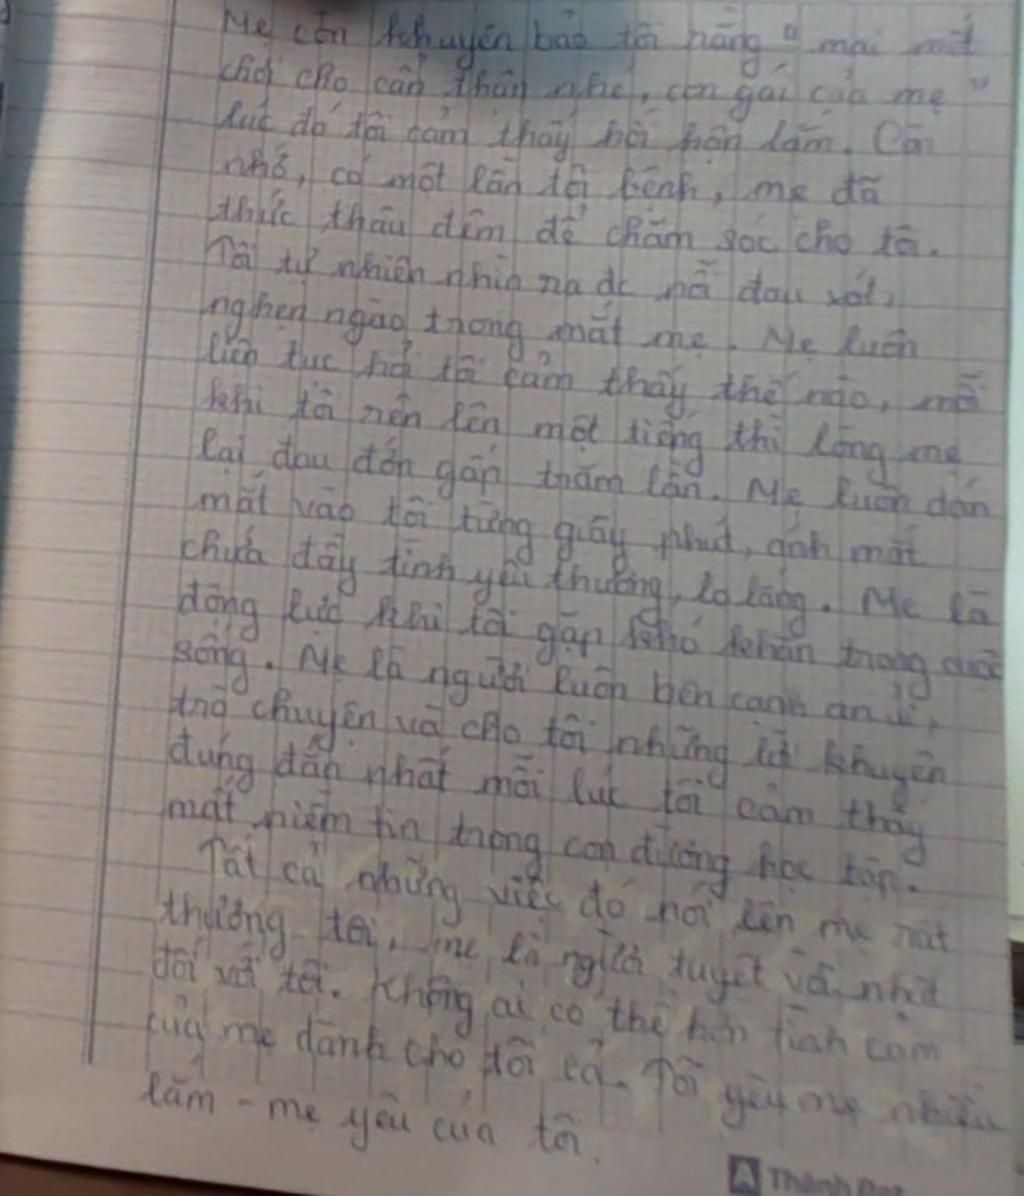 Mẹ còn khuyên bảo tôi rằng " mai mốt
chơi cho cẩn thận nhé, con gái của mẹ "
lúc đó tôi cảm thấy hối hận lắm. Còn
nhớ, có một lần tôi bệnh, mẹ đã
thức thâu đêm để chăm sóc cho tôi.
Tôi tự nhiên nhìn ra đc nỗi đau xót,
nghẹn ngào trong mắt mẹ. Mẹ luôn
liên tục hỏi tôi cảm thấy thế nào, mỗi
khi tôi rên lên một tiếng thì lòng mẹ
lại đau đớn gấp trăm lần. Mẹ luôn dán
mắt vào tôi từng giây phút, ánh mắt
chứa đầy tình yêu thương, lo lắng. Mẹ là
động lực khi tôi gặp khó khăn trong cuộc
sống. Mẹ là người luôn bên cạnh an ủi,
trò chuyện và cho tôi những lời khuyên
đúng đắn nhất mỗi lúc tôi cảm thấy
mất niềm tin trong con đường học tập.
Tất cả những việc đó nói lên mẹ rất
thương tôi, mẹ là người tuyệt vời nhất
đối với tôi. Không ai có thể hơn tình cảm
của mẹ dành cho tôi cả. Tôi yêu mẹ nhiều
lắm - mẹ yêu của tôi.
Thành